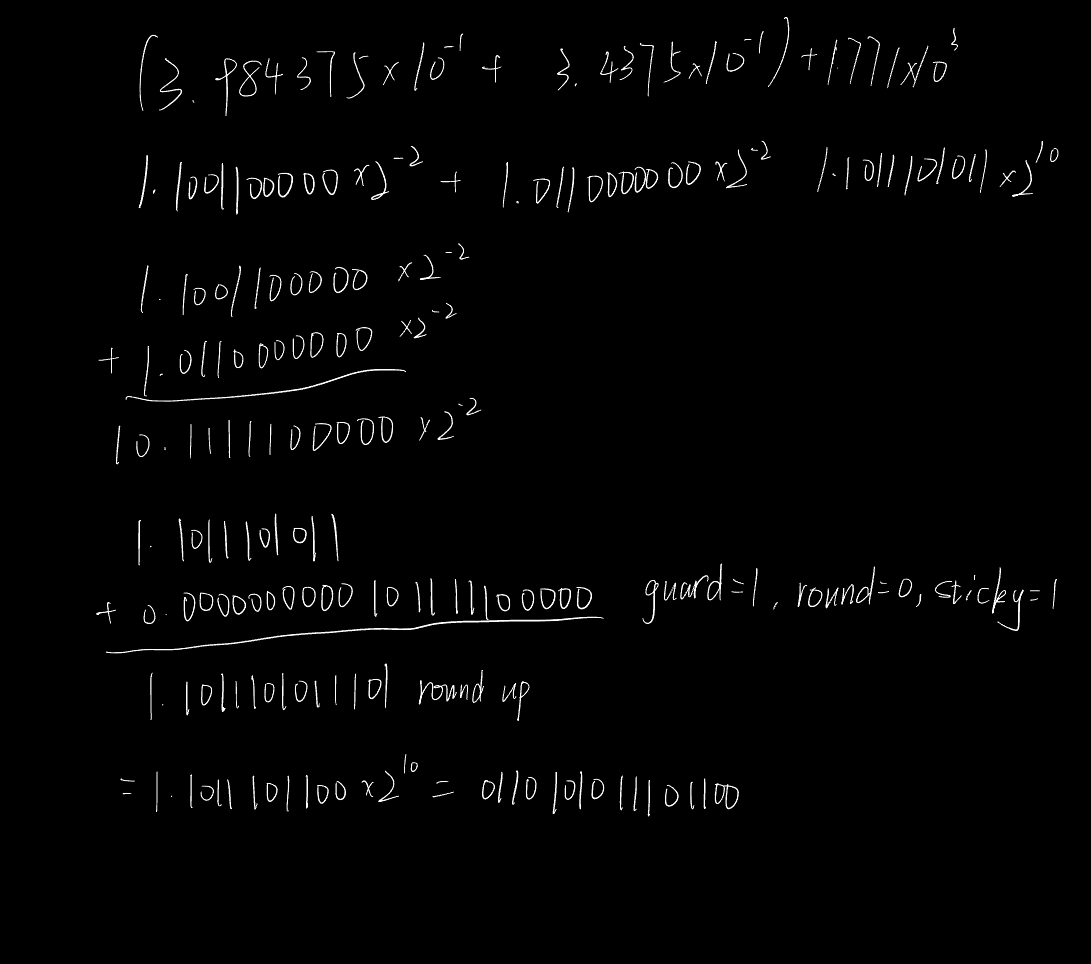 (3.984375×10⁻¹ + 3.4375×10⁻¹)+1771×10³
1.1001100000 ×2⁻² + 1.0110000000 ×2⁻² 1.1011101011 ×2¹⁰
1.1001100000 ×2⁻²
+ 1.0110000000 ×2⁻²
10.1111100000 ×2⁻²
1.1011101011
+ 0.0000000000101111100000 guard=1, round=0, sticky=1
1.1011101011101 round up
= 1.1011101100 ×2¹⁰ = 0110101011101100